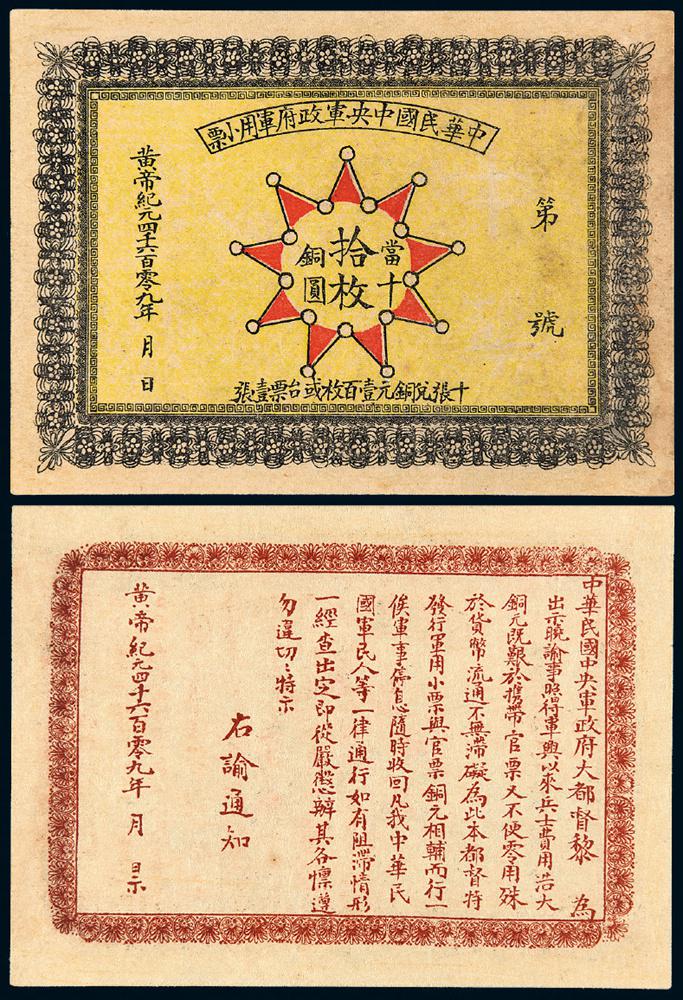 中華民國中央軍政府軍用小票
第 號
當十
拾枚
銅圓
十張兌銅元壹百枚或台票壹張
黃帝紀元四千六百零九年 月 日
中華民國中央軍政府大都督黎 為
出示曉諭事照得軍興以來兵士費用浩大
銅元既艱於攜帶官票又不便零用殊
於貨幣流通不無滯礙為此本都督特
發行軍用小票與官票銅元相輔而行一
俟軍事停息隨時收回凡我中華民
國軍民人等一律通行如有阻滯情形
一經查出定即從嚴懲辦其各懍遵
勿違切〻特示
右諭通知
黃帝紀元四千六百零九年 月 日示